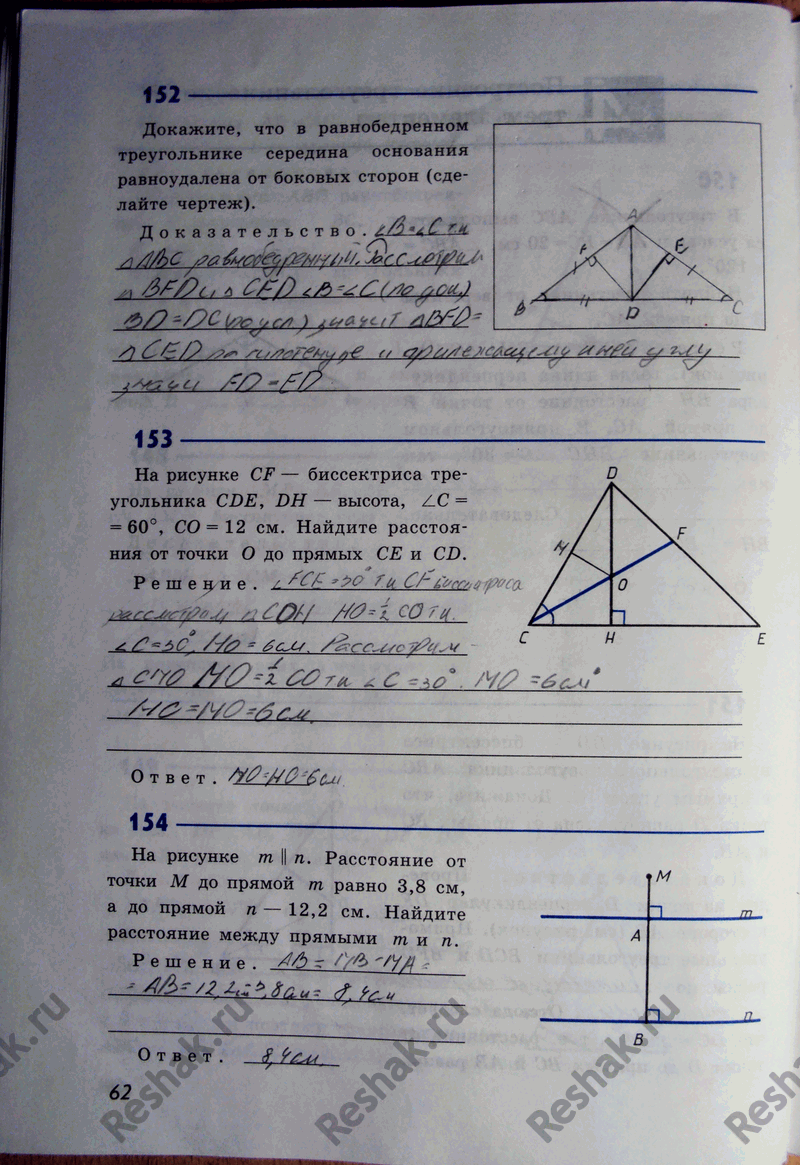 152
Докажите, что в равнобедренном
треугольнике середина основания
равноудалена от боковых сторон (сде-
лайте чертеж).
Доказательство. ∠B=∠C т.к
△ABC равнобедренный. Рассмотрим
△BFD и △CED ∠B=∠C
BD=DC (по усл) значит △BFD=
△CED по гипотенузе и прилежащему к ней углу
FD=ED
A
F
E
B
D
C
153
На рисунке CF — биссектриса тре-
угольника CDE, DH — высота, ∠C =
= 60°, CO = 12 см. Найдите расстоя-
ния от точки O до прямых CE и CD.
Решение. ∠FCE=30° т.к CF биссектриса
рассмотрим △COH HO=½ CO т.к.
∠C=30°, HO=6см. Рассмотрим
△CMO MO=½ CO т.к ∠C=30°. MO=6см
HO=MO=6см.
Ответ. MO=HO=6см
D
M
F
O
C
H
E
154
На рисунке m ∥ n. Расстояние от
точки M до прямой m равно 3,8 см,
а до прямой n — 12,2 см. Найдите
расстояние между прямыми m и n.
Решение. AB=MB-MA=
=AB=12,2см-3,8см=8,4см
Ответ. 8,4см.
M
m
A
n
B
62
Reshak.ru
Reshak.ru
Reshak.ru